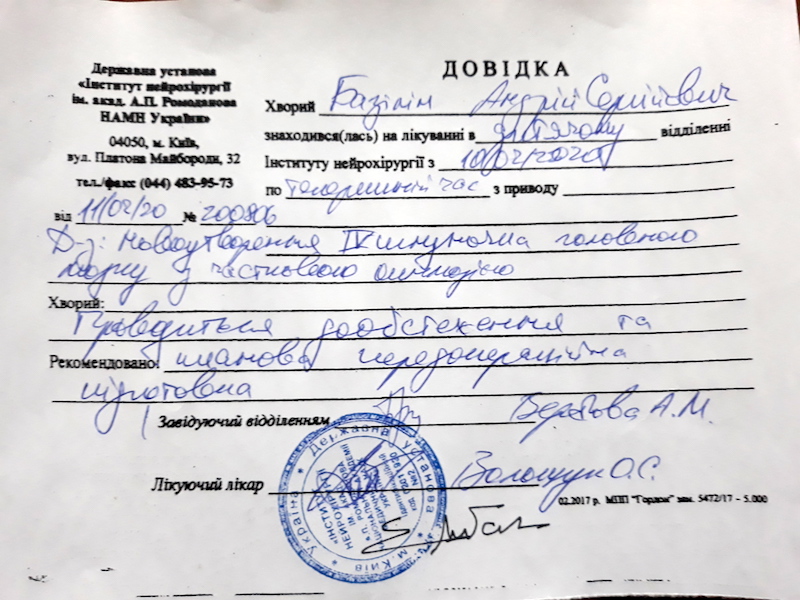 Державна установа
«Інститут нейрохірургії
ім. акад. А.П. Ромоданова
НАМН України»
04050, м. Київ,
вул. Платона Майбороди, 32
тел./факс (044) 483-95-73
від 11/02/20 № 200806
ДОВІДКА
Хворий Базілін Андрій Сергійович
знаходився(лась) на лікуванні в дитячому відділенні
Інституту нейрохірургії з 10/02/2020
по теперешній час з приводу
Д-з: Новоутворення IV шлуночка головного
мозку з частковою оклюзією
Хворий:
Проводиться дообстеження та
Рекомендовано: планова передопераційна
підготовка
Завідуючий відділенням А.М.
Лікуючий лікар Волощук О.С.
02.2017 р. МПП "Гордон" зам. 5472/17 - 5.000
Державна установа
Україна
м. Київ